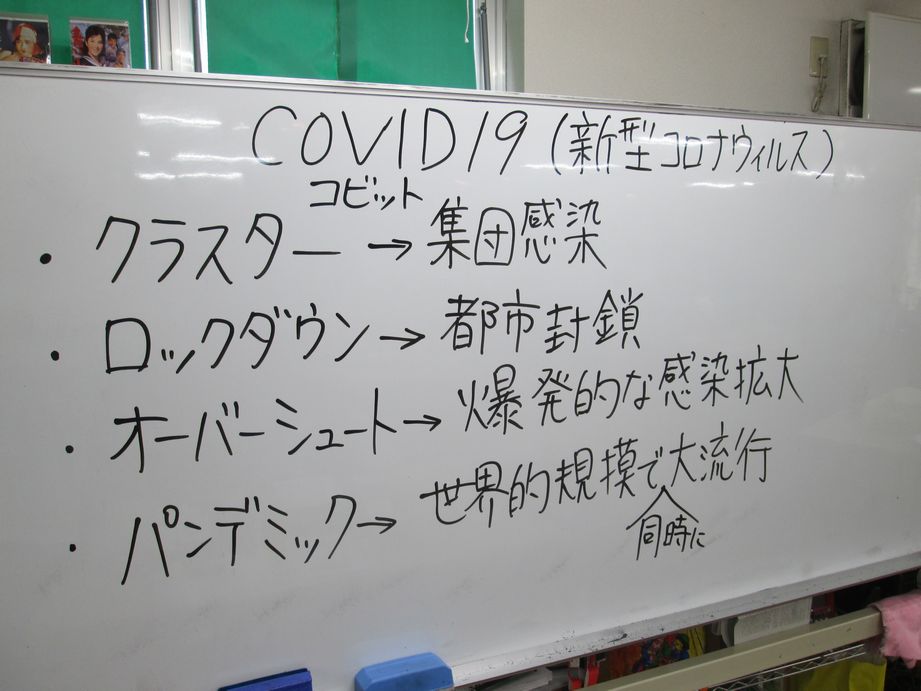 COVID19(新型コロナウィルス)
コビット
・クラスター→集団感染
・ロックダウン→都市封鎖
・オーバーシュート→爆発的な感染拡大
・パンデミック→世界的規模で大流行
同時に